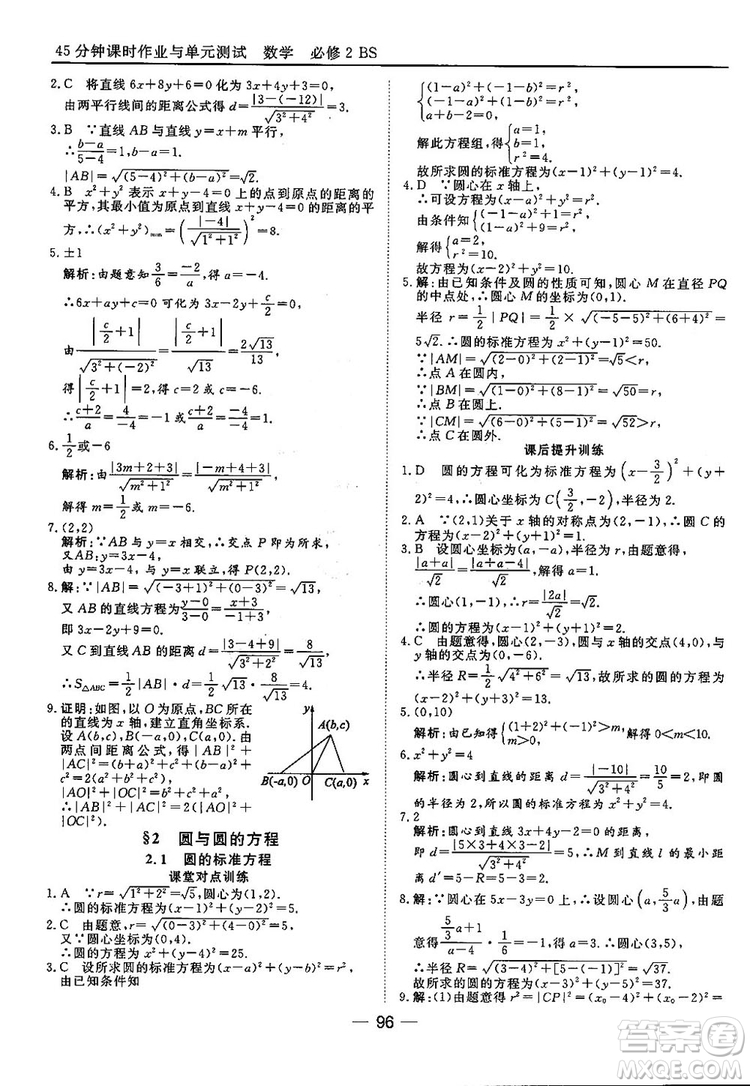 45分钟课时作业与单元测试 数学 必修2 BS
2. C 将直线6x+8y+6=0化为3x+4y+3=0,
由两平行线间的距离公式得d=|3-(-12)|/√(3²+4²)=3.
3. B ∵直线AB与直线y=x+m平行,
∴(b-a)/(5-4)=1,b-a=1.
|AB|=√((5-4)²+(b-a)²)=√2.
4. B x²+y²表示x+y-4=0上的点到原点的距离的
平方,其最小值为原点到直线x+y-4=0的距离的平
方,∴(x²+y²)min=(|-4|/√(1²+1²))²=8.
5. ±1
解析:由题意知3/6=-2/a,∴a=-4.
∴6x+ay+c=0可化为3x-2y+c/2=0,
由|c/2+1|/√(3²+(-2)²)=|c/2+1|/√13=2√13/13,
得|c/2+1|=2,得c=2或-6.
∴(c+2)/a=4/-4=-1或(c+2)/a=-4/-4=1.
6. 1/2或-6
解析:|3m+2+3|/√(m²+1²)=|-m+4+3|/√(m²+1²),
解得m=1/2或m=-6.
7. (2,2)
解析:∵AB与y=x相交,∴交点P即为所求,
由3x-y-4=0,与y=x联立,得P(2,2).
8. 解:∵|AB|=√((-3+1)²+(0-3)²)=√13,
又AB的直线方程(y-0)/(3-0)=(x+3)/(-1+3),
即3x-2y+9=0.
又C到直线的距离d=|3-4+9|/√(3²+2²)=8/√13,
∴S△ABC=1/2·√13·8/√13=4.
9. 证明:如图,以O为原点,BC所在
的直线为x轴,建立直角坐标系.
设A(b,c),B(-a,0),C(a,0),由
两点间距离公式,得|AB|²+
|AC|²=2a²+2b²+2c²,|AO|²=b²+
c²=b²+c²,|OC|²=a².
|AO|²+|OC|²=a²+b²+c²,
∴|AB|²+|AC|²=2(|AO|²+|OC|²).
y
A(b,c)
B(-a,0) O C(a,0) x
§2 圆与圆的方程
2.1 圆的标准方程
课堂对点训练
1. A ∵r=√(1²+2²)=√5,圆心为(1,2),
∴圆的标准方程为(x-1)²+(y-2)²=5.
2. C 由题意,r=√((0-3)²+(4-0)²)=5.
又∵圆心坐标为(0,4).
∴圆的方程为x²+(y-4)²=25.
3. C 设所求圆的标准方程为(x-a)²+(y-b)²=r²,
由已知条件知
{(1-a)²+(-1-b)²=r²,
(-1-a)²+(1-b)²=r²,
a+b-2=0.
解此方程组,得{a=1,
b=1,
r²=4.
故所求圆的标准方程为(x-1)²+(y-1)²=4.
4. D ∵圆心在x轴上,
∴可设方程为(x-a)²+y²=r².
由条件知{(-1-a)²+1=r²,
(1-a)²+9=r²,
解得{a=2,
r²=10.
故方程为(x-2)²+y²=10.
5. 解:由已知条件及圆的性质可知,圆心M在直径PQ
的中点处,∴圆心M的坐标为(0,1).
半径r=1/2|PQ|=1/2×√((-5-5)²+(6+4)²)=
5√2.∴圆的标准方程为x²+(y-1)²=50.
∵|AM|=√((2-0)²+(2-1)²)=√5<r.
∴点A在圆内.
∵|BM|=√((1-0)²+(8-1)²)=√50=r.
∴点B在圆上.
∵|CM|=√((6-0)²+(5-1)²)=√52>r.
∴点C在圆外.
课后提升训练
1. D 圆的方程可化为标准方程为(x-3/2)²+(y+
2)²=4,∴圆心坐标为(3/2,-2),半径为2.
2. A ∵(2,1)关于x轴的对称点为(2,-1),∴圆C的
方程为(x-2)²+(y+1)²=1.
3. B 设圆心坐标为(a,-a),半径为r,由题意得:
|a+a|/√(1²+1²)=|a+a-4|/√(1²+1²)=r,解得a=1.
∴圆心(1,-1),∴r=|2a|/√2=√2,
∴圆C的方程为(x-1)²+(y+1)²=2.
4. C 由题意得,圆心(2,-3),圆与x轴的交点(4,0),与
y轴的交点(0,-6).
∴半径R=√(3²+2²)=√13,故所求的圆的方程为
(x-2)²+(y+3)²=13.
5. (0,10)
解析:由已知知{(1+2)²+(-1)²>m,
m>0.得0<m<10.
6. x²+y²=4
解析:圆心到直线的距离为|-10|/√(3²+4²)=2,即圆
的半径为2,那么圆的方程为x²+y²=4.
7. 2
解析:圆心到直线3x+4y-2=0的距离,
即d=|5×3+4×3-2|/√(3²+4²)=5.∴M到直线l的最小
距离d′=5-3=2.
8. 解:∵圆心在直线5x-3y=0上,∴设圆心(a,5/3a),由题
意得(5/3a+1)/(a-4)=-6,得a=3,∴圆心为(3,5).
∴半径R=√((3-4)²+[5-(-1)]²)=√37.
故所求圆的方程为(x-3)²+(y-5)²=37.
9. 解:(1)由题意,得|CP|²=(x₀-4)²+(y₀-2)²
96
答案圈
MXQE.COM